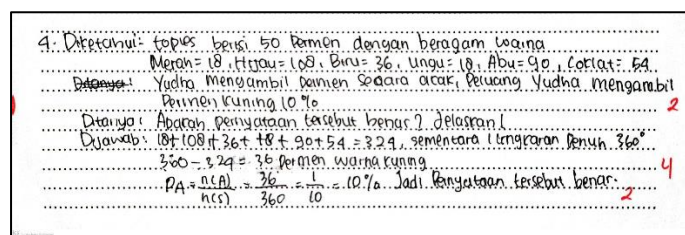 4. Diketahui: toples berisi 50 Permen dengan beragam warna
Merah = 18, Hijau = 108, Biru = 36, Ungu = 18, Abu = 90, Coklat = 54
Yudha mengambil permen secara acak, Peluang Yudha mengambil
Permen kuning 10 % 2
Ditanya: Apakah pernyataan tersebut benar? Jelaskan!
Dijawab: 18+108+36+18+90+54 = 324, sementara lingkaran Penuh 360°
360 - 324 = 36 Permen warna kuning 4
PA = n(A)/n(s) = 36/360 = 1/10 = 10% Jadi Pernyataan tersebut benar. 2